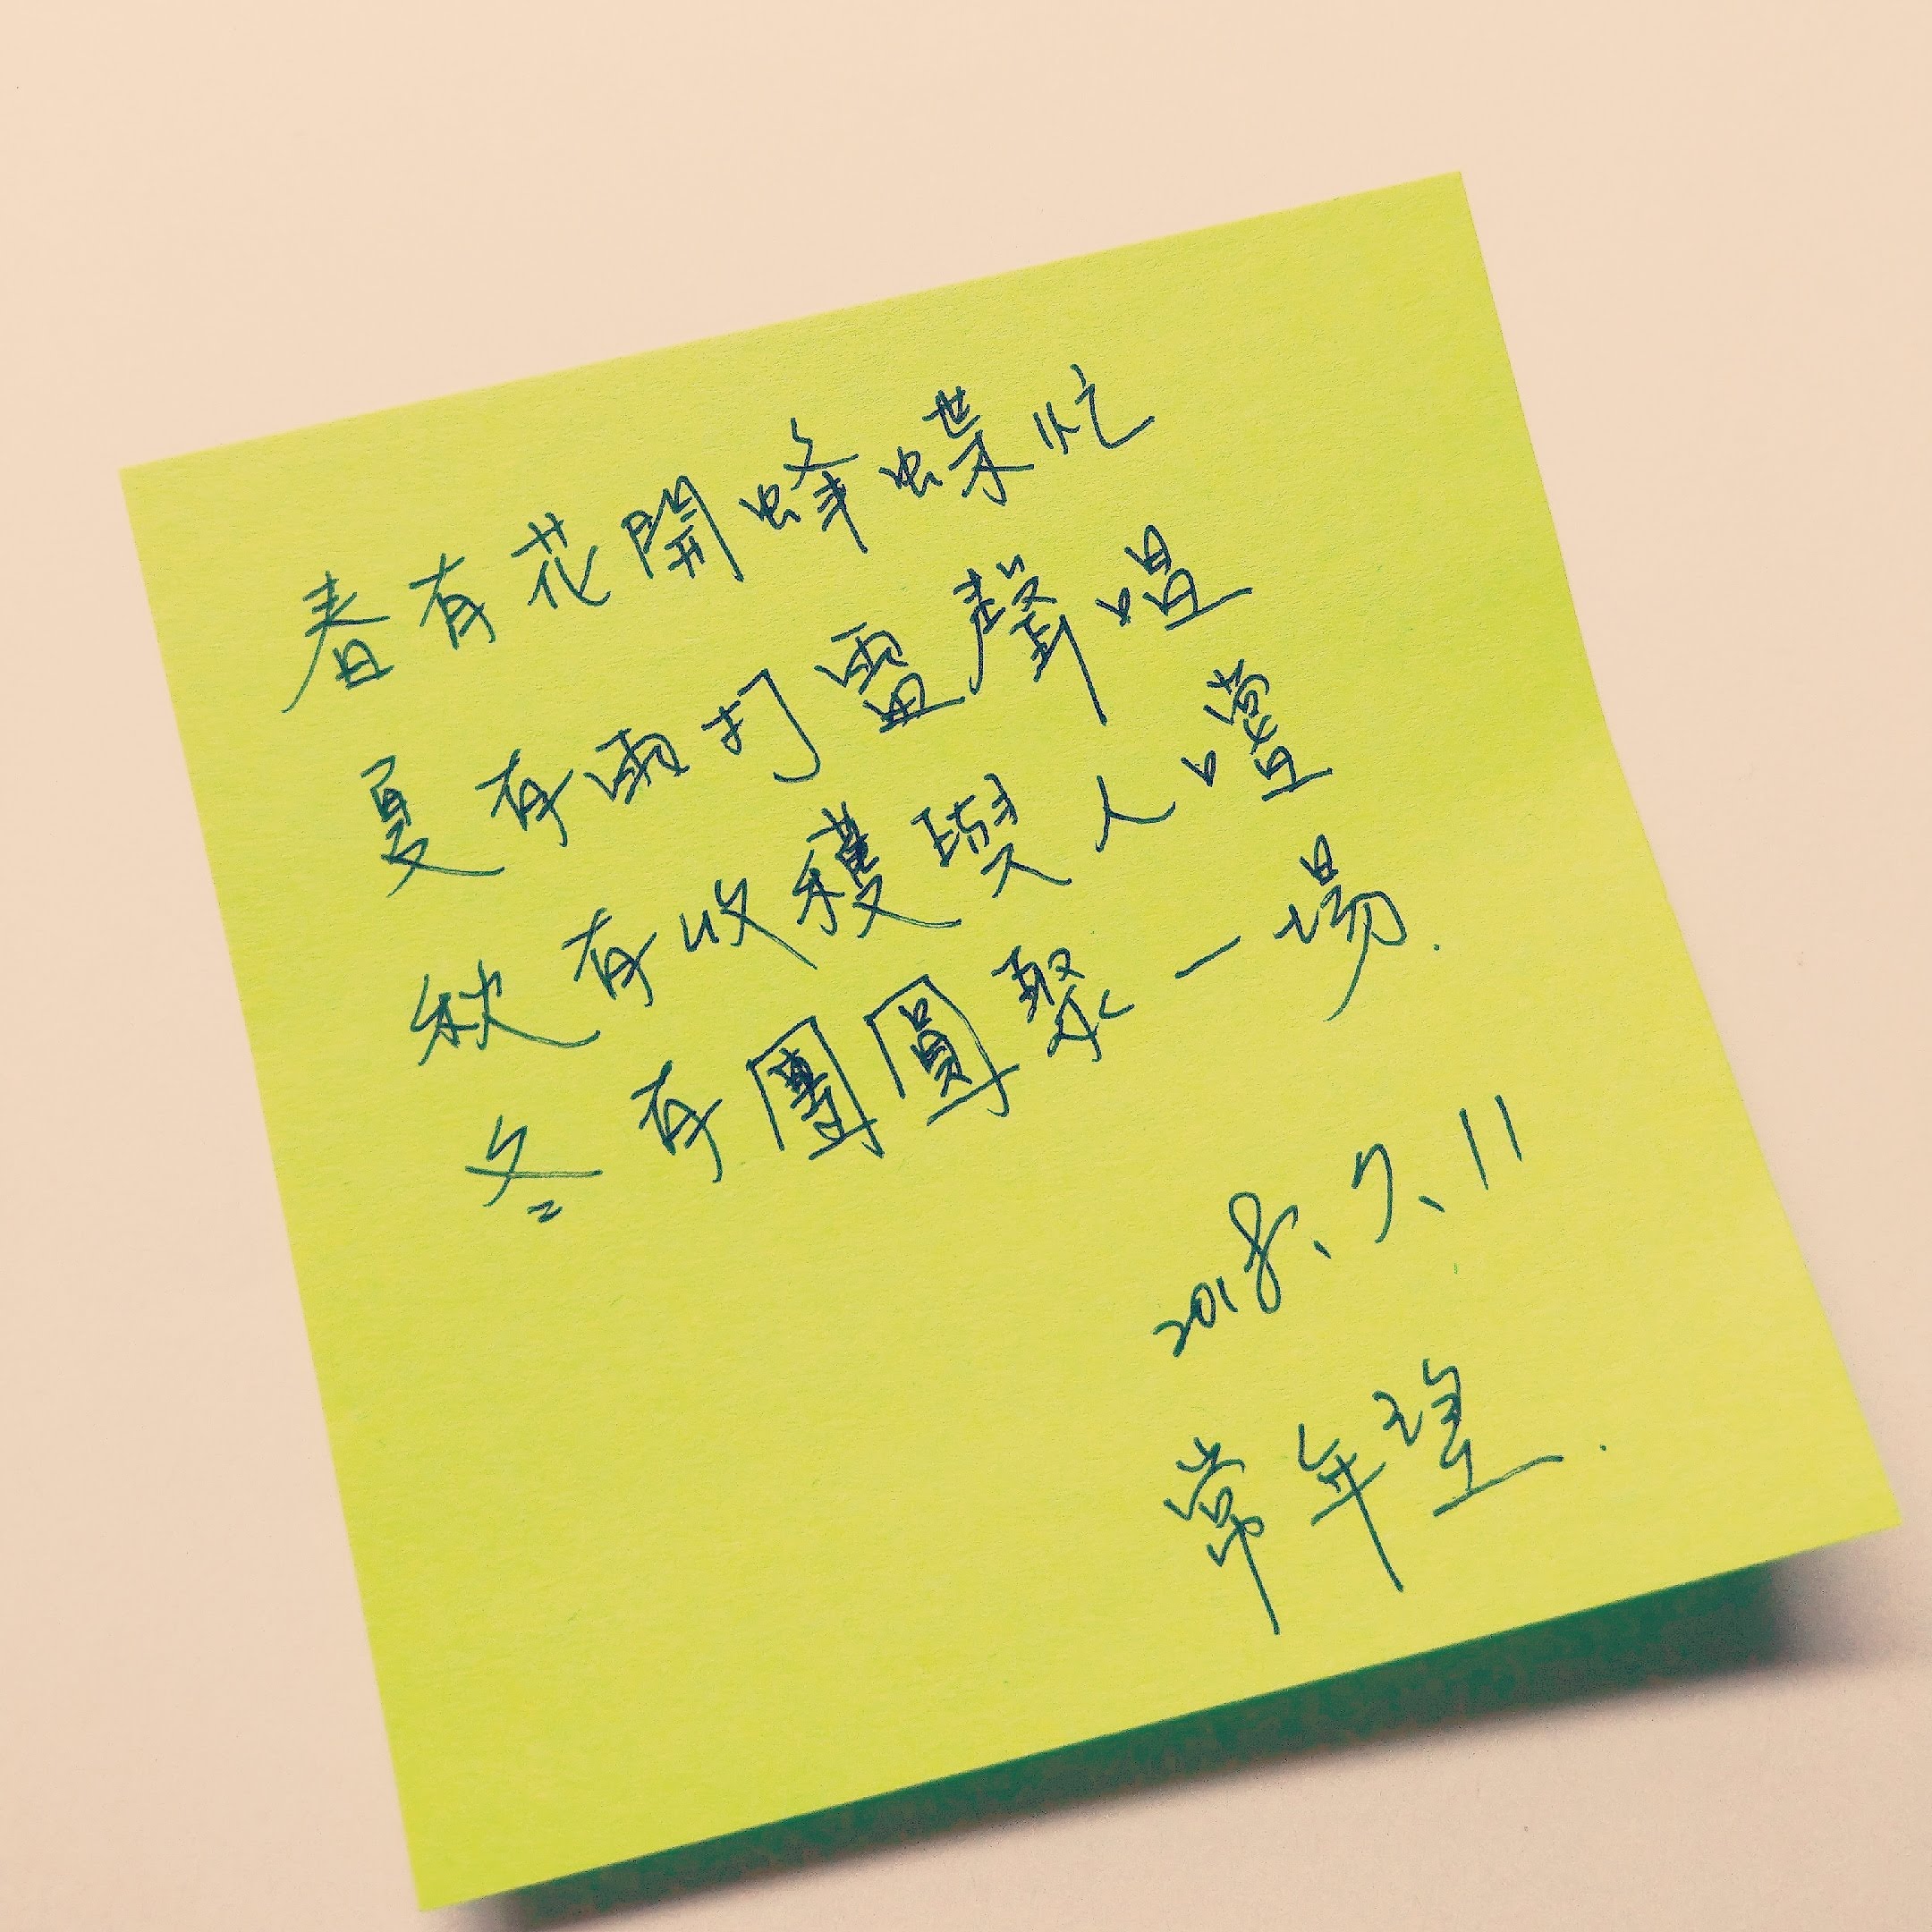 春有花開蜂蝶忙
夏有雨打雷聲喤
秋有收穫與人噹
冬有團圓聚一場.
2018、7、11
常年望.